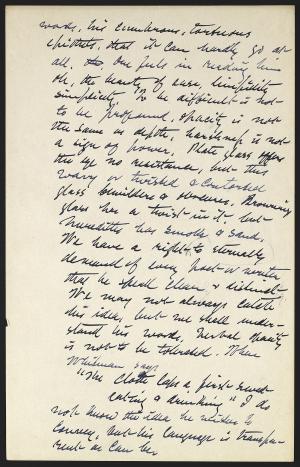 words, his cumbrous, tortuous
epithets, that it can hardly go at
all. One feels in reading him
oh, the beauty of ease, limpidity
simplicity. To be difficult is not
to be profound, opacity is not
the same as depth, harshness is not
a sign of power. Plate glass offers
the eye no resistance, but this
wavy or twisted & contorted
glass bewilders & obscures. Browning
glass has a twist in it, but
Meredith's has smoke & sand.
We have a right to eternally
demand of every poet or writer
that he speak clear & distinct.
We may not always catch
his idea, but we shall under-
stand his words. Verbal opacity
is not to be tolerated. When
Whitman says
"The cloth laps a first sweet
eating & drinking" I do
not know the idea he wishes to
convey, but his language is transpa-
rent as can be.